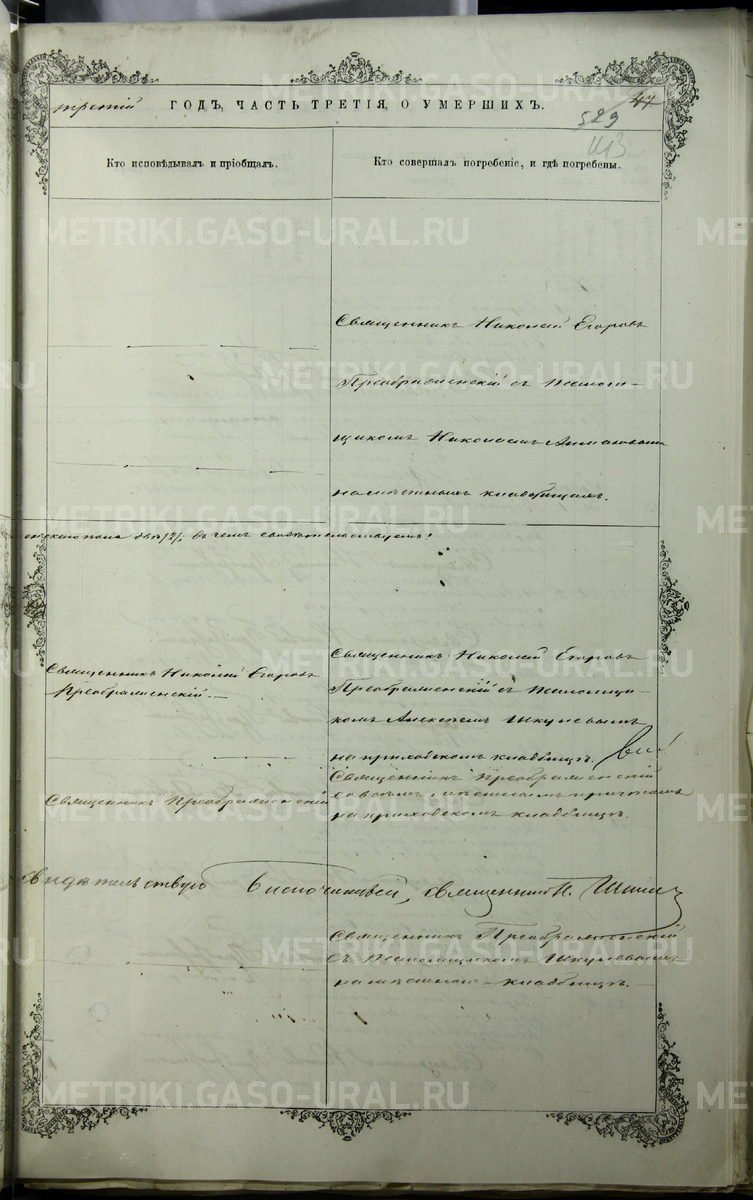 третій ГОДЪ, ЧАСТЬ ТРЕТІЯ, О УМЕРШИХЪ.
47
529
113
Кто исповѣдывалъ и пріобщалъ.
Кто совершалъ погребеніе, и гдѣ погребены.
Священникъ Николай Егоровъ
Преображенскій съ Псаломщи-
щикомъ Николаемъ
на мѣстномъ кладбищахъ.
въ чемъ свидѣтельствуемъ:
Священникъ Николай Егоровъ
Преображенскій.
Священникъ Николай Егоровъ
Преображенскій съ Псаломщи-
комъ Алексѣемъ Шкулевымъ
на приходскомъ кладбищѣ.
Священникъ Преображенскій
Священникъ Преображенскій
со всѣмъ мѣстнымъ причтомъ
на приходскомъ кладбищѣ.
Свидѣтельствую Благочинный, священникъ П.
Священникъ Преображенскій
съ Псаломщикомъ Шкулевымъ
на мѣстномъ кладбищѣ.
METRIKI.GASO-URAL.RU